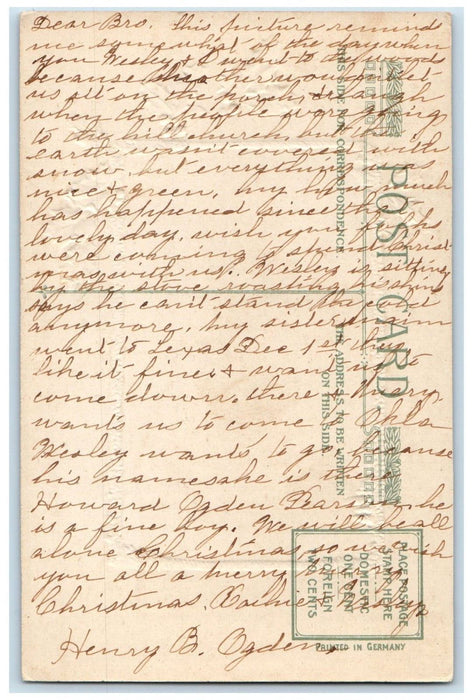 Dear Bro. This picture reminds
me somewhat of the day when
you Wesley & I went to
because the others would not let
us sit on the porch, & laugh
when the people were going
to the hill church, but the
earth wasn't covered with
snow, but everything was
nice & green, my how much
has happened since that
lovely day, wish you folks
were coming to spend Christ
mas with us. Wesley is sitting
by the stove roasting his shins
says he can't stand the cold
anymore, my sister
went to Texas Dec 1st they
like it fine, & want us to
come down there,
wants us to come to Okla
Wesley wants to go because
his namesake is there
Howard Ogden he
is a fine boy. We will be all
alone Christmas, so we wish
you all a merry, merry
Christmas.
Henry B. Ogden,
POST CARD
THIS SIDE FOR CORRESPONDENCE
THE ADDRESS TO BE WRITTEN
ON THIS SIDE
PLACE POSTAGE
STAMP HERE
DOMESTIC
ONE CENT
FOREIGN
TWO CENTS
PRINTED IN GERMANY